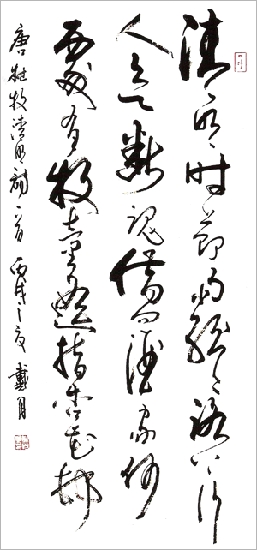 清明时节雨纷纷路上行
人欲断魂借问酒家何
处有牧童遥指杏花邨
唐杜牧清明诗一首 丙戌之夏 戴月